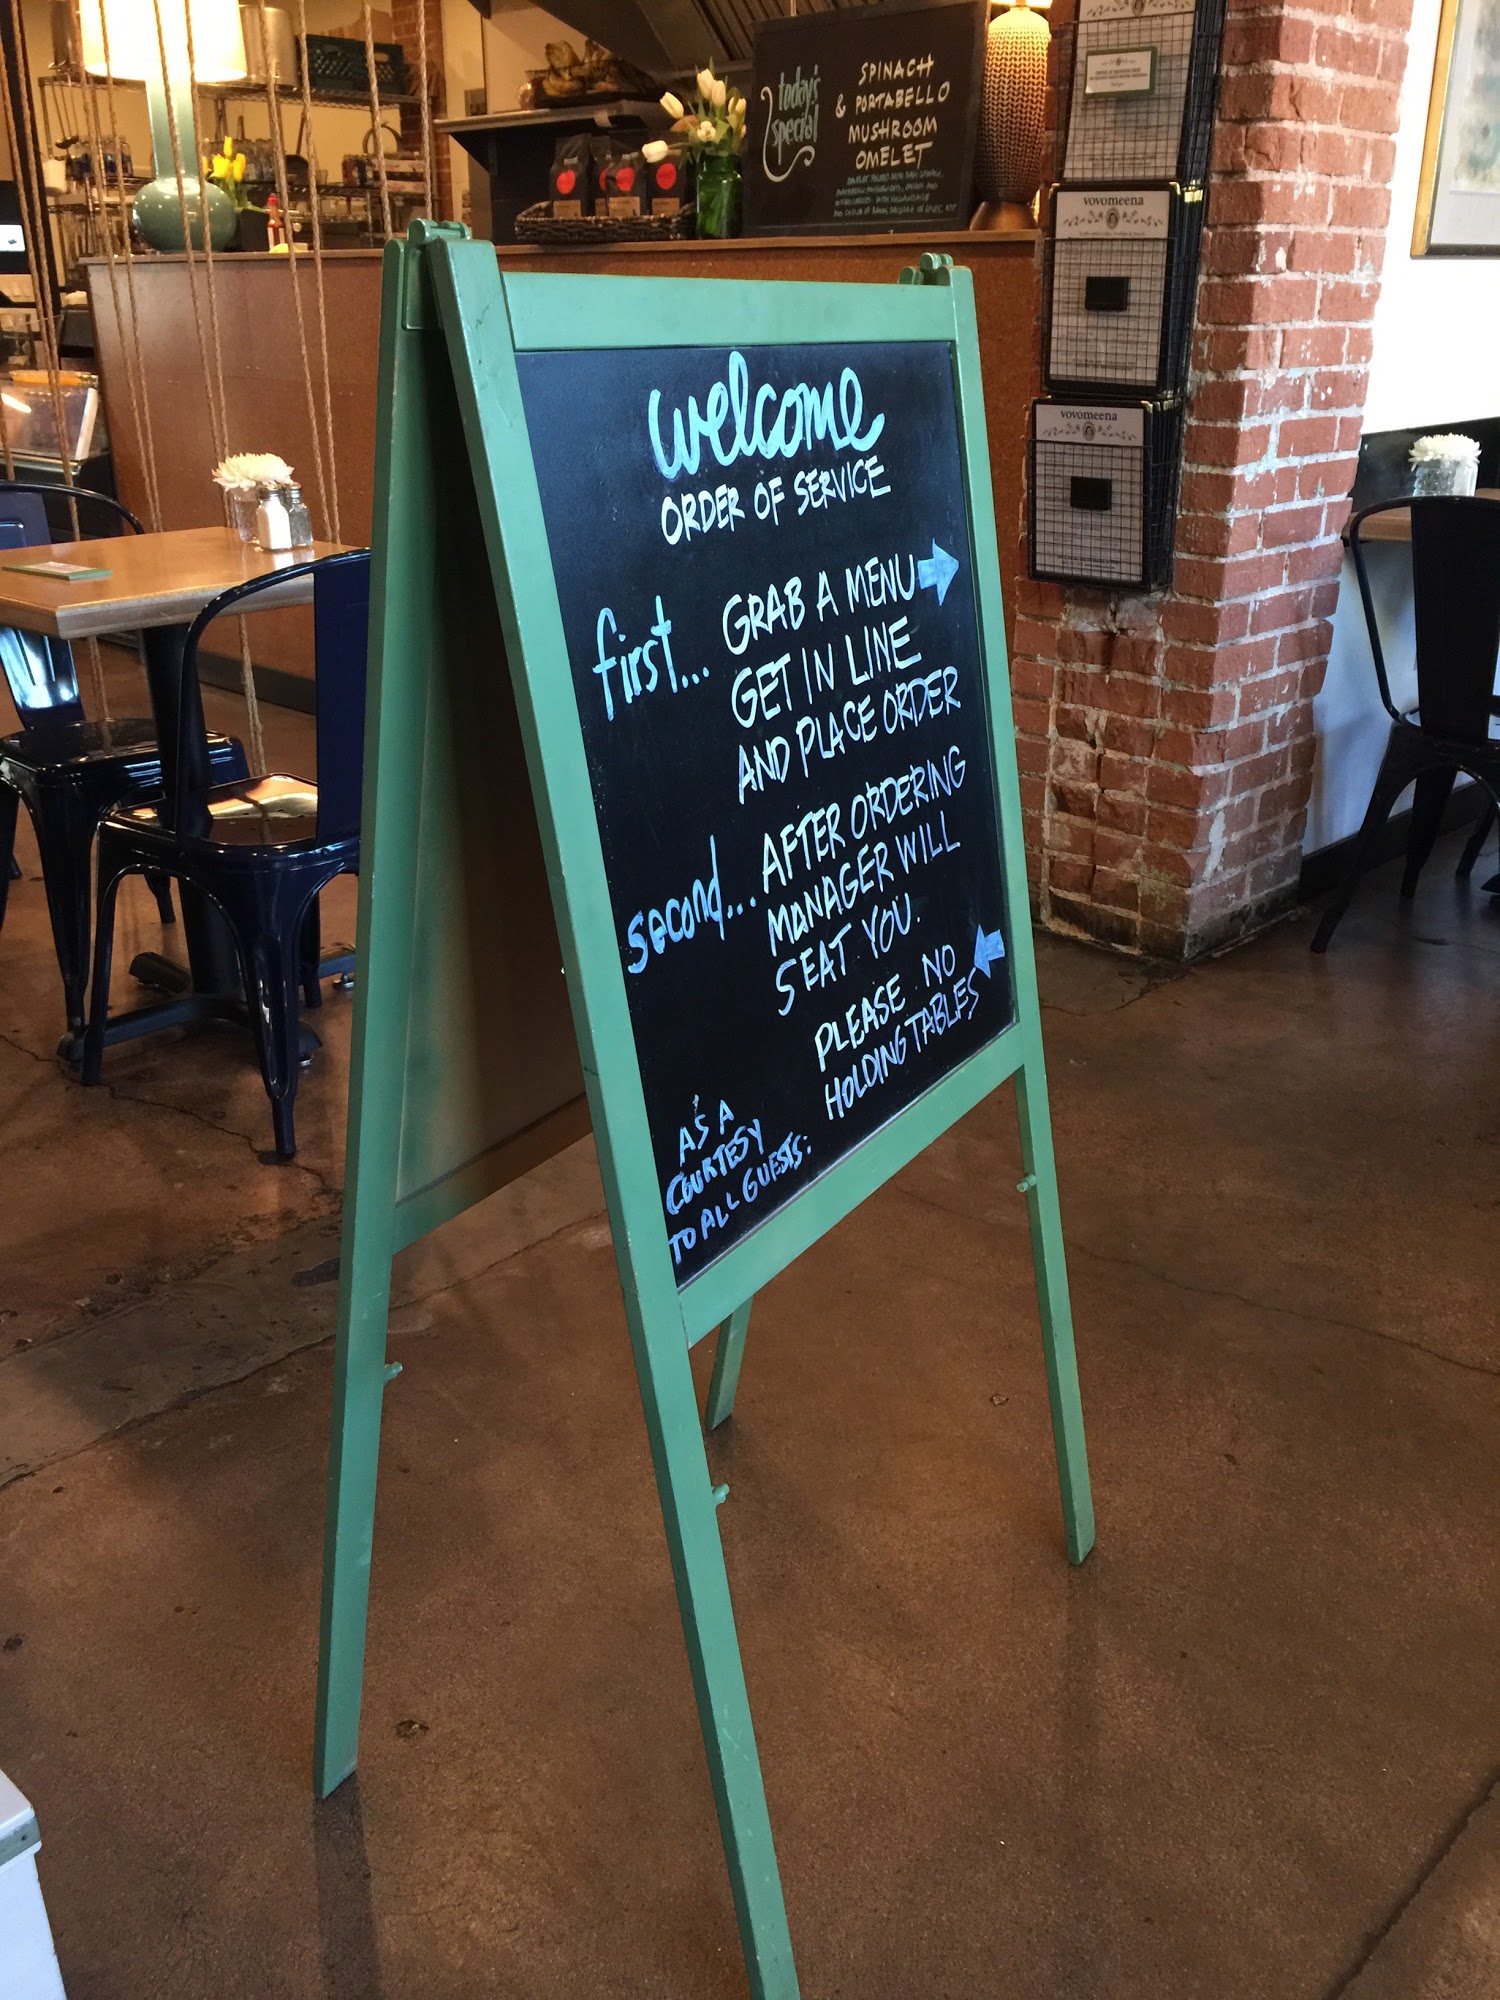 today's
special
SPINACH
& PORTABELLO
MUSHROOM
OMELET
vovomeena
vovomeena
welcome
ORDER OF SERVICE
first... GRAB A MENU
GET IN LINE
AND PLACE ORDER
second... AFTER ORDERING
MANAGER WILL
SEAT YOU.
PLEASE NO
HOLDING TABLES
AS A
COURTESY
TO ALL GUESTS: